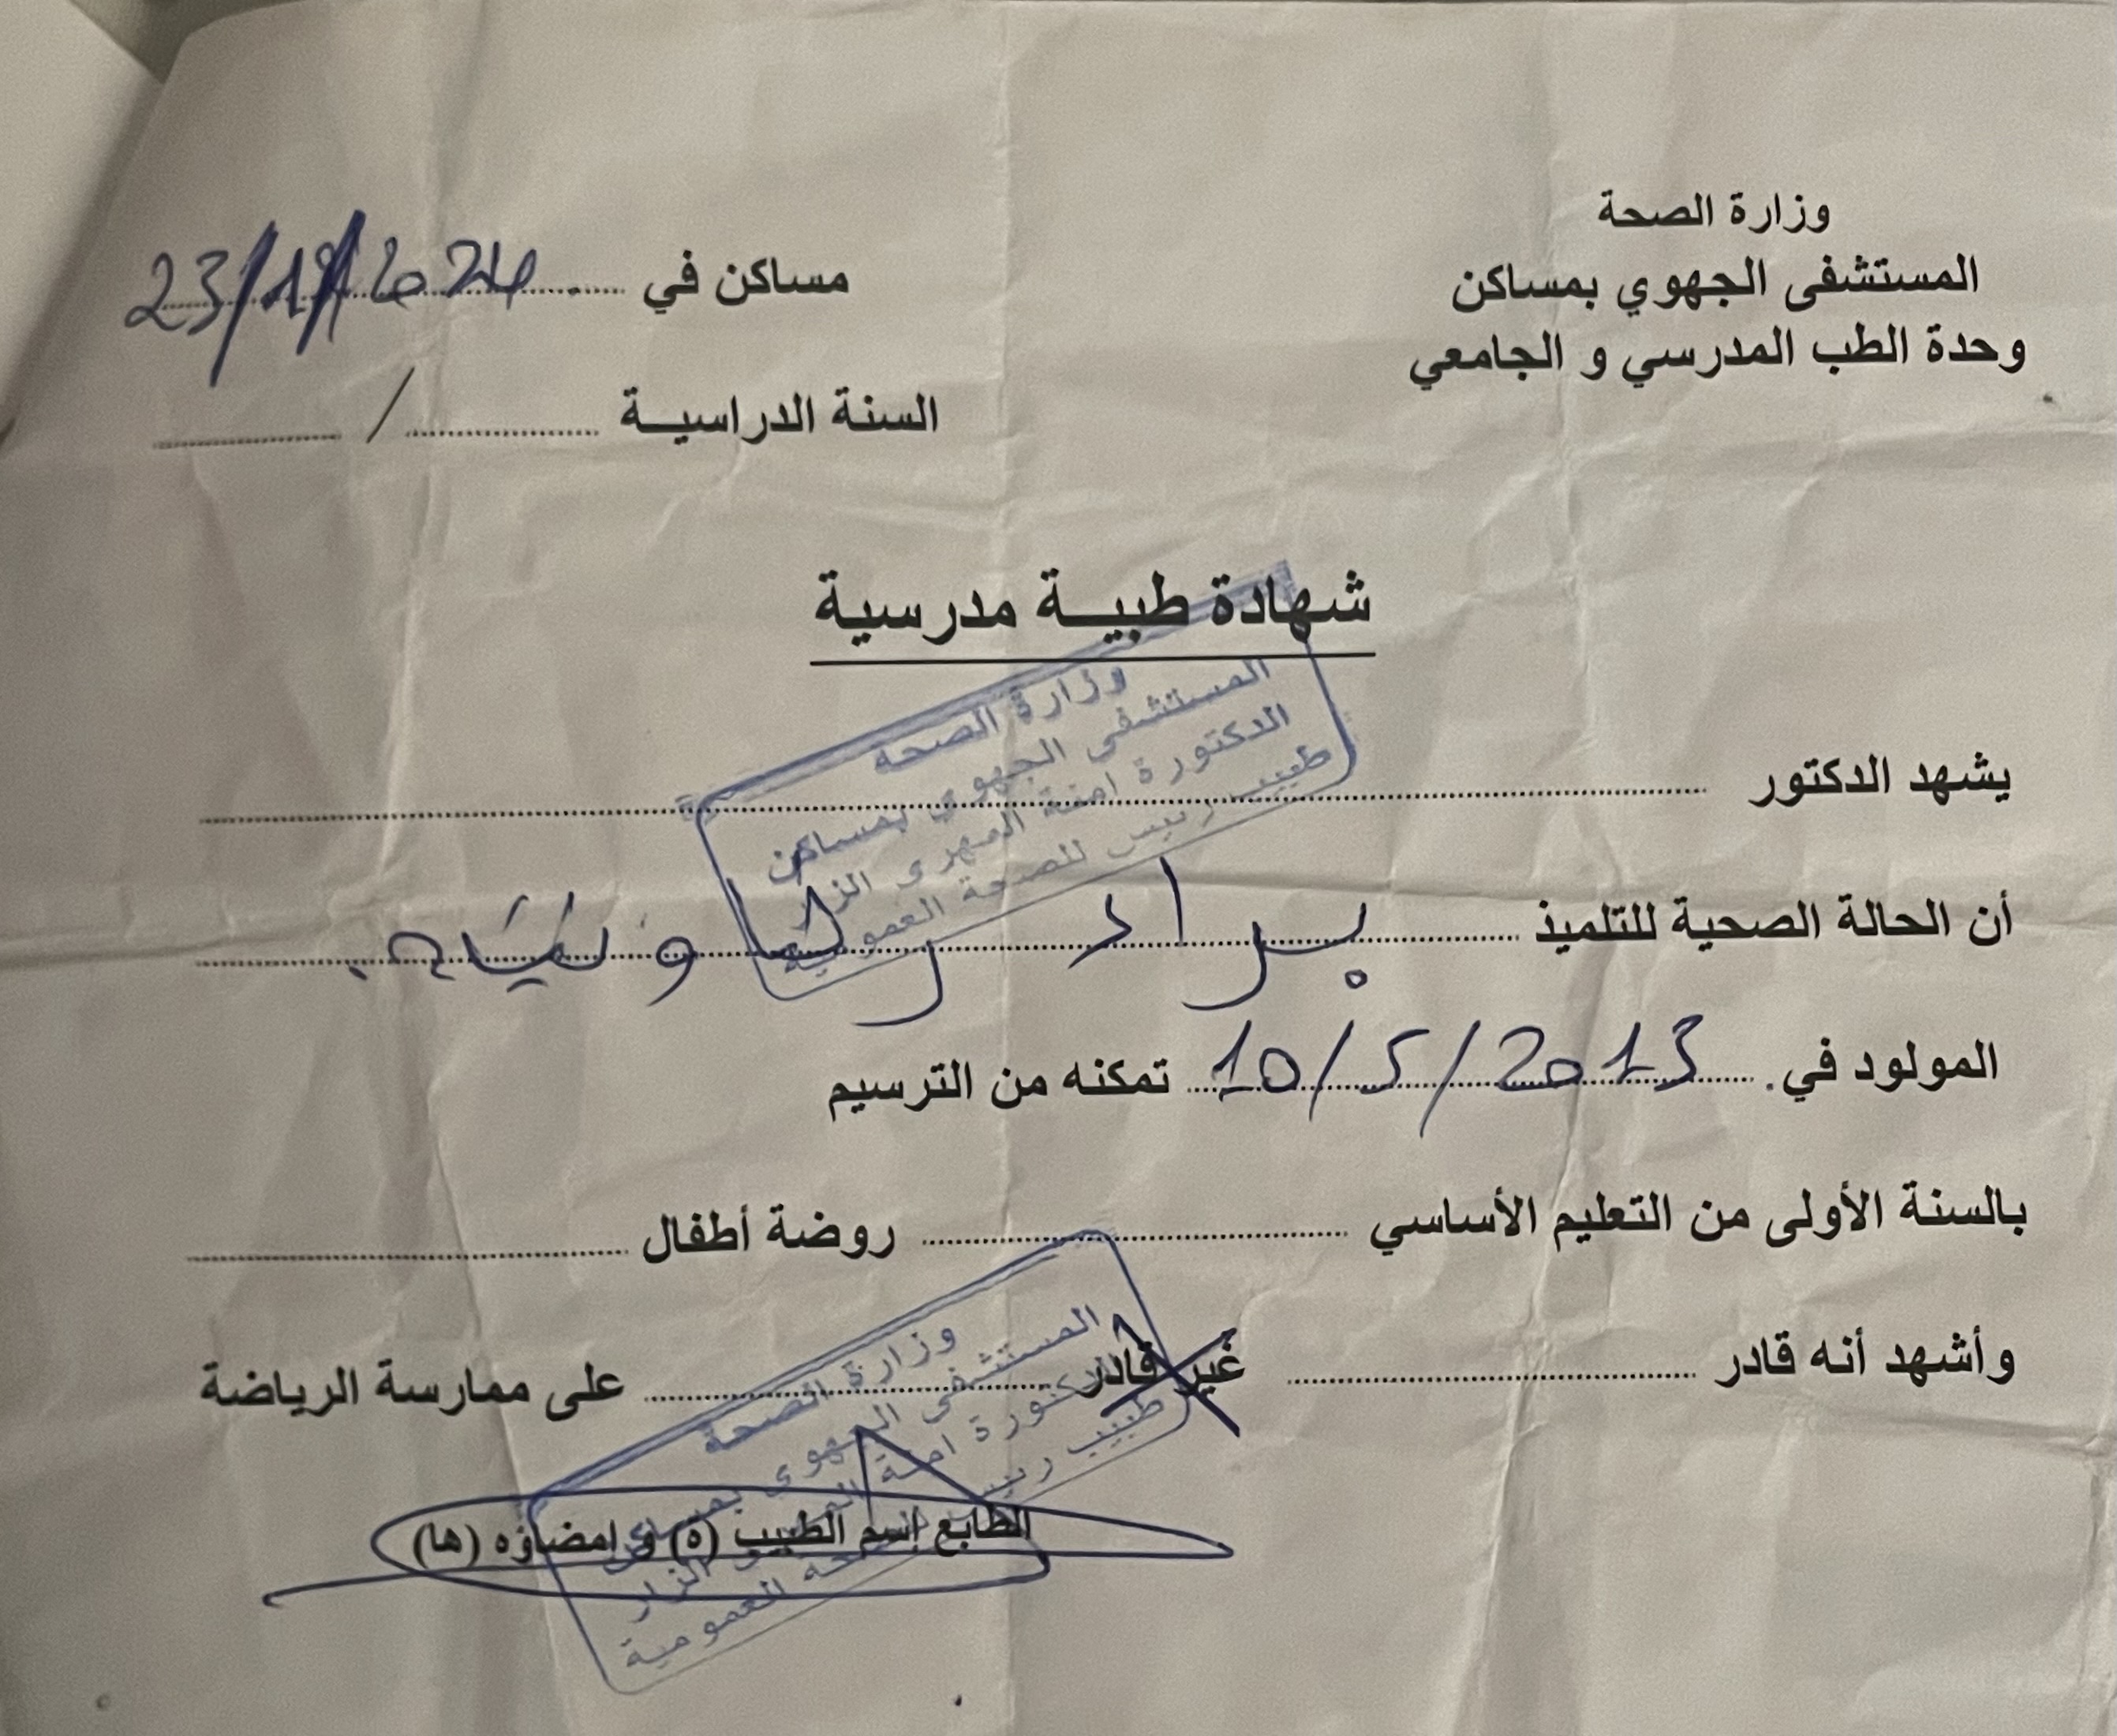 وزارة الصحة
المستشفى الجهوي بمساكن
وحدة الطب المدرسي و الجامعي
مساكن في ............ 23/ /2024
السنة الدراسيـــة ............ / ............
شهادة طبيـــة مدرسية
وزارة الصحة
المستشفى الجهوي بمساكن
الدكتورة امنة المهري الزار
طبيب رئيس للصحة العمومية
يشهد الدكتور ............
أن الحالة الصحية للتلميذ ............ براد
المولود في. 10/5/2013 تمكنه من الترسيم
بالسنة الأولى من التعليم الأساسي ............ روضة أطفال ............
وأشهد أنه قادر ............ غير قادر ............ على ممارسة الرياضة
وزارة الصحة
المستشفى الجهوي بمساكن
الدكتورة امنة المهري الزار
طبيب رئيس للصحة العمومية
الطابع إسم الطبيب (ه) و امضاؤه (ها)